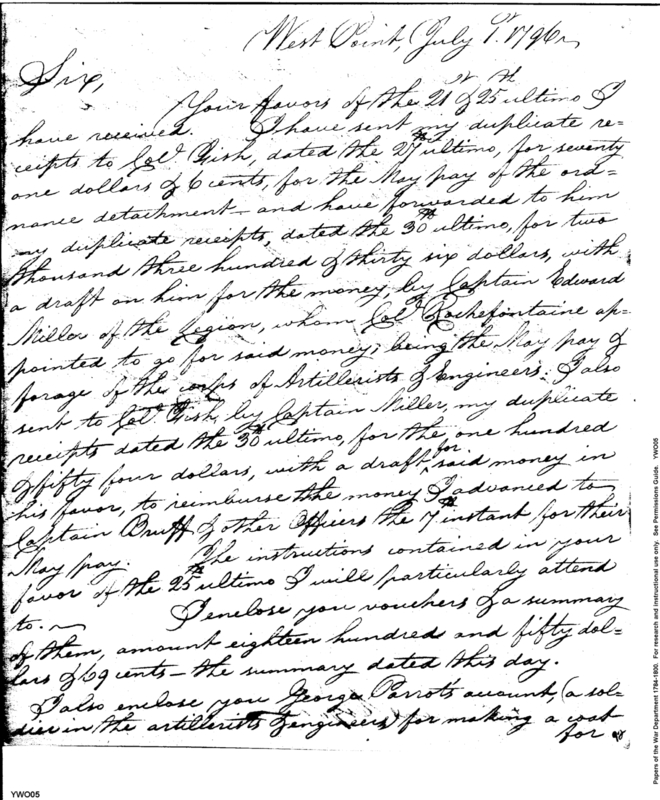 West Point, July 1st. 1796
Sir,
Your favors of the 21st & 25th ultimo I
have received. I have sent my duplicate re=
ceipts to Col. Fish, dated the 27th ultimo, for seventy
one dollars & 6 cents, for the May pay of the ord=
nance detachment - and have forwarded to him
my duplicate receipts, dated the 30th ultimo, for two
thousand three hundred & thirty six dollars, with
a draft on him for the money, by Captain Edward
Miller of the Legion, whom Col. Rochefontaine ap=
pointed to go for said money; being the May pay &
forage of the corps of Artillerists & Engineers. I also
sent to Col. Fish, by Captain Miller, my duplicate
receipts dated the 30th ultimo, for the one hundred
& fifty four dollars, with a draft for said money in
his favor, to reimburse the money I advanced to
Captain Bruff & other Officers the 7th instant for their
May pay. The instructions contained in your
favor of the 25th ultimo I will particularly attend
to.
I enclose you vouchers & a summary
of them, amount eighteen hundred and fifty dol=
lars & 69 cents - the summary dated this day.
I also enclose you George Parrot's account, (a sol=
dier in the artillerists & engineers) for making a coat
for
YWO05
Papers of the War Department 1784-1800. For research and instructional use only. See Permissions Guide. YWO05